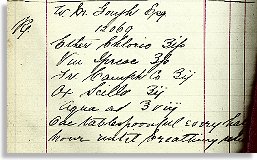 W. Dr. Gough Esq
12069
Ether Chloric ʒij
Vin Ipecac ʒj
Tr Camph Co ʒij
Ox Scillo ʒj
Aqua ad ʒ viij
One tablespoonful every half
hour until breathing